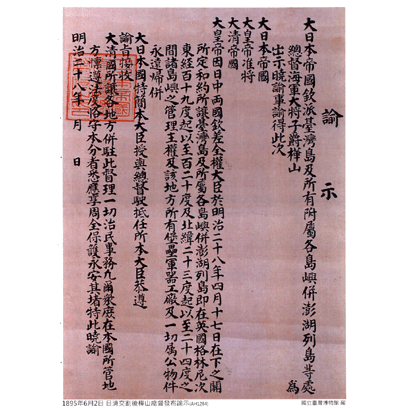 諭示
大日本帝國欽派臺灣島及所有附屬各島嶼併澎湖列島等處
總督海軍大將子爵樺山 為
出示曉諭事諭得此次
大日本帝國
大皇帝准特
大清帝國
大皇帝因日中兩國欽差全權大臣於明治二十八年四月十七日在下之關
所定和約所讓臺灣島及所屬各島嶼併澎湖列島即在英國格林尼次
東經百十九度起以至百二十度及北緯二十三度起以至二十四度之
間諸島嶼之管理主權及該地方所有堡壘軍器工廠及一切屬公物件
永遠歸併
大日本國特簡本大臣授與總督駛抵任所本大臣恭遵
諭旨接收
大清國所讓各地方併駐此督理一切治民事務凡爾眾庶在本國所管地
方懍遵法度恪守本分者悉應享周全保護永安其堵特此曉諭
明治二十八年 月 日
1895年6月2日 日清交割後樺山總督發布諭示
國立臺灣博物館 藏